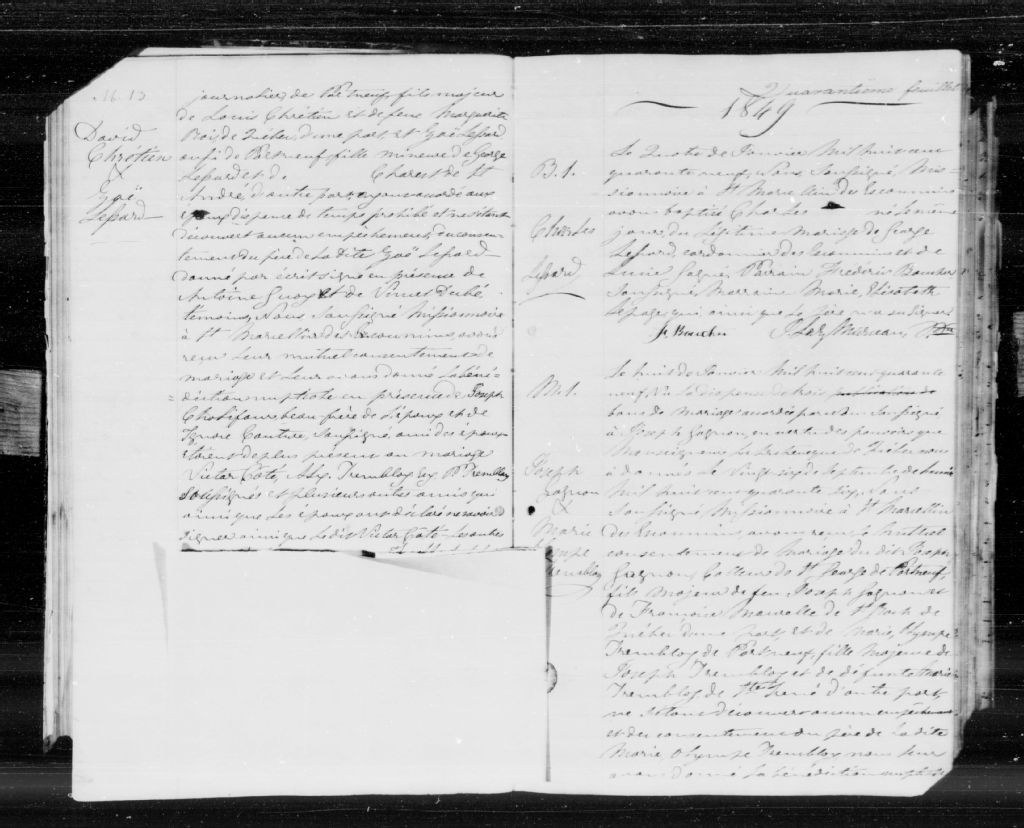 M. 13
David
Chrétien
&
Zoë
Lepard
journalier, de Portneuf, fils majeur
de Louis Chrétien et de feue Marguerite
Bois de Québec d'une part et Zoé Lepard
aussi de Portneuf, fille mineure de George
Lepard et de Charest de St
André, d'autre part, ayant accordé aux
époux dispense de temps prohibé et ne s'étant
découvert aucun empêchement, du consen-
tement du père de la dite Zoë Lepard
donné par écrit signé en présence de
Antoine et de Vincent Dubé
témoins, Nous soussigné Missionnaire
à St Marcellin des Escoumins avons
reçu leur mutuel consentement de
mariage et leur avons donné la béné-
diction nuptiale en présence de Joseph
beau-père de l'époux et de
Couture, soussigné, ami des époux
étoient de plus présens au mariage
Victor Côté, Alex. Tremblay P. Tremblay
soussignés et plusieurs autres amis qui
ainsi que les époux ont déclaré ne savoir
signer ainsi que le dit Victor Côté
Quarantième feuillet
1849
B. 1.
Charles
Lepard
Le quatre de Janvier Mil huit cent
quarante neuf, Nous, soussigné, Mis-
sionnaire à St Marcellin des Escoumins
avons baptisé Charles né le
jours, du légitime mariage de George
Lepard cordonnier des Escoumins et de
Lucie Gagné, Parrain Frederic Boucher
soussigné, Marraine Marie, Elisabeth
Lepage qui ainsi que le père n'a su signer
F. Boucher
M. 1.
Joseph
Gagnon
&
Marie
Olympe
Tremblay
Le huit de Janvier Mil huit cent quarante
neuf, Vu la dispense de trois publications de
bans de mariage accordée par nous soussigné
à Joseph Gagnon, en vertu des pouvoirs que
Monseigneur l'Archevêque de Québec nous
a donnés le Vingt six de Septembre, de l'année
Mil huit cent quarante six, Nous
soussigné Missionnaire à St Marcellin
des Escoumins, avons reçu le mutuel
consentement de mariage du dit Joseph
Gagnon, de St George de Portneuf,
fils majeur de feu Joseph Gagnon et
de Françoise de St Roch de
Québec d'une part, et de Marie, Olympe
Tremblay de Portneuf, fille majeure de
Joseph Tremblay et de défunte
Tremblay de d'autre part,
ne s'étant découvert aucun empêchement
et du consentement du père de la dite
Marie Olympe Tremblay nous leur
avons donné la bénédiction nuptiale